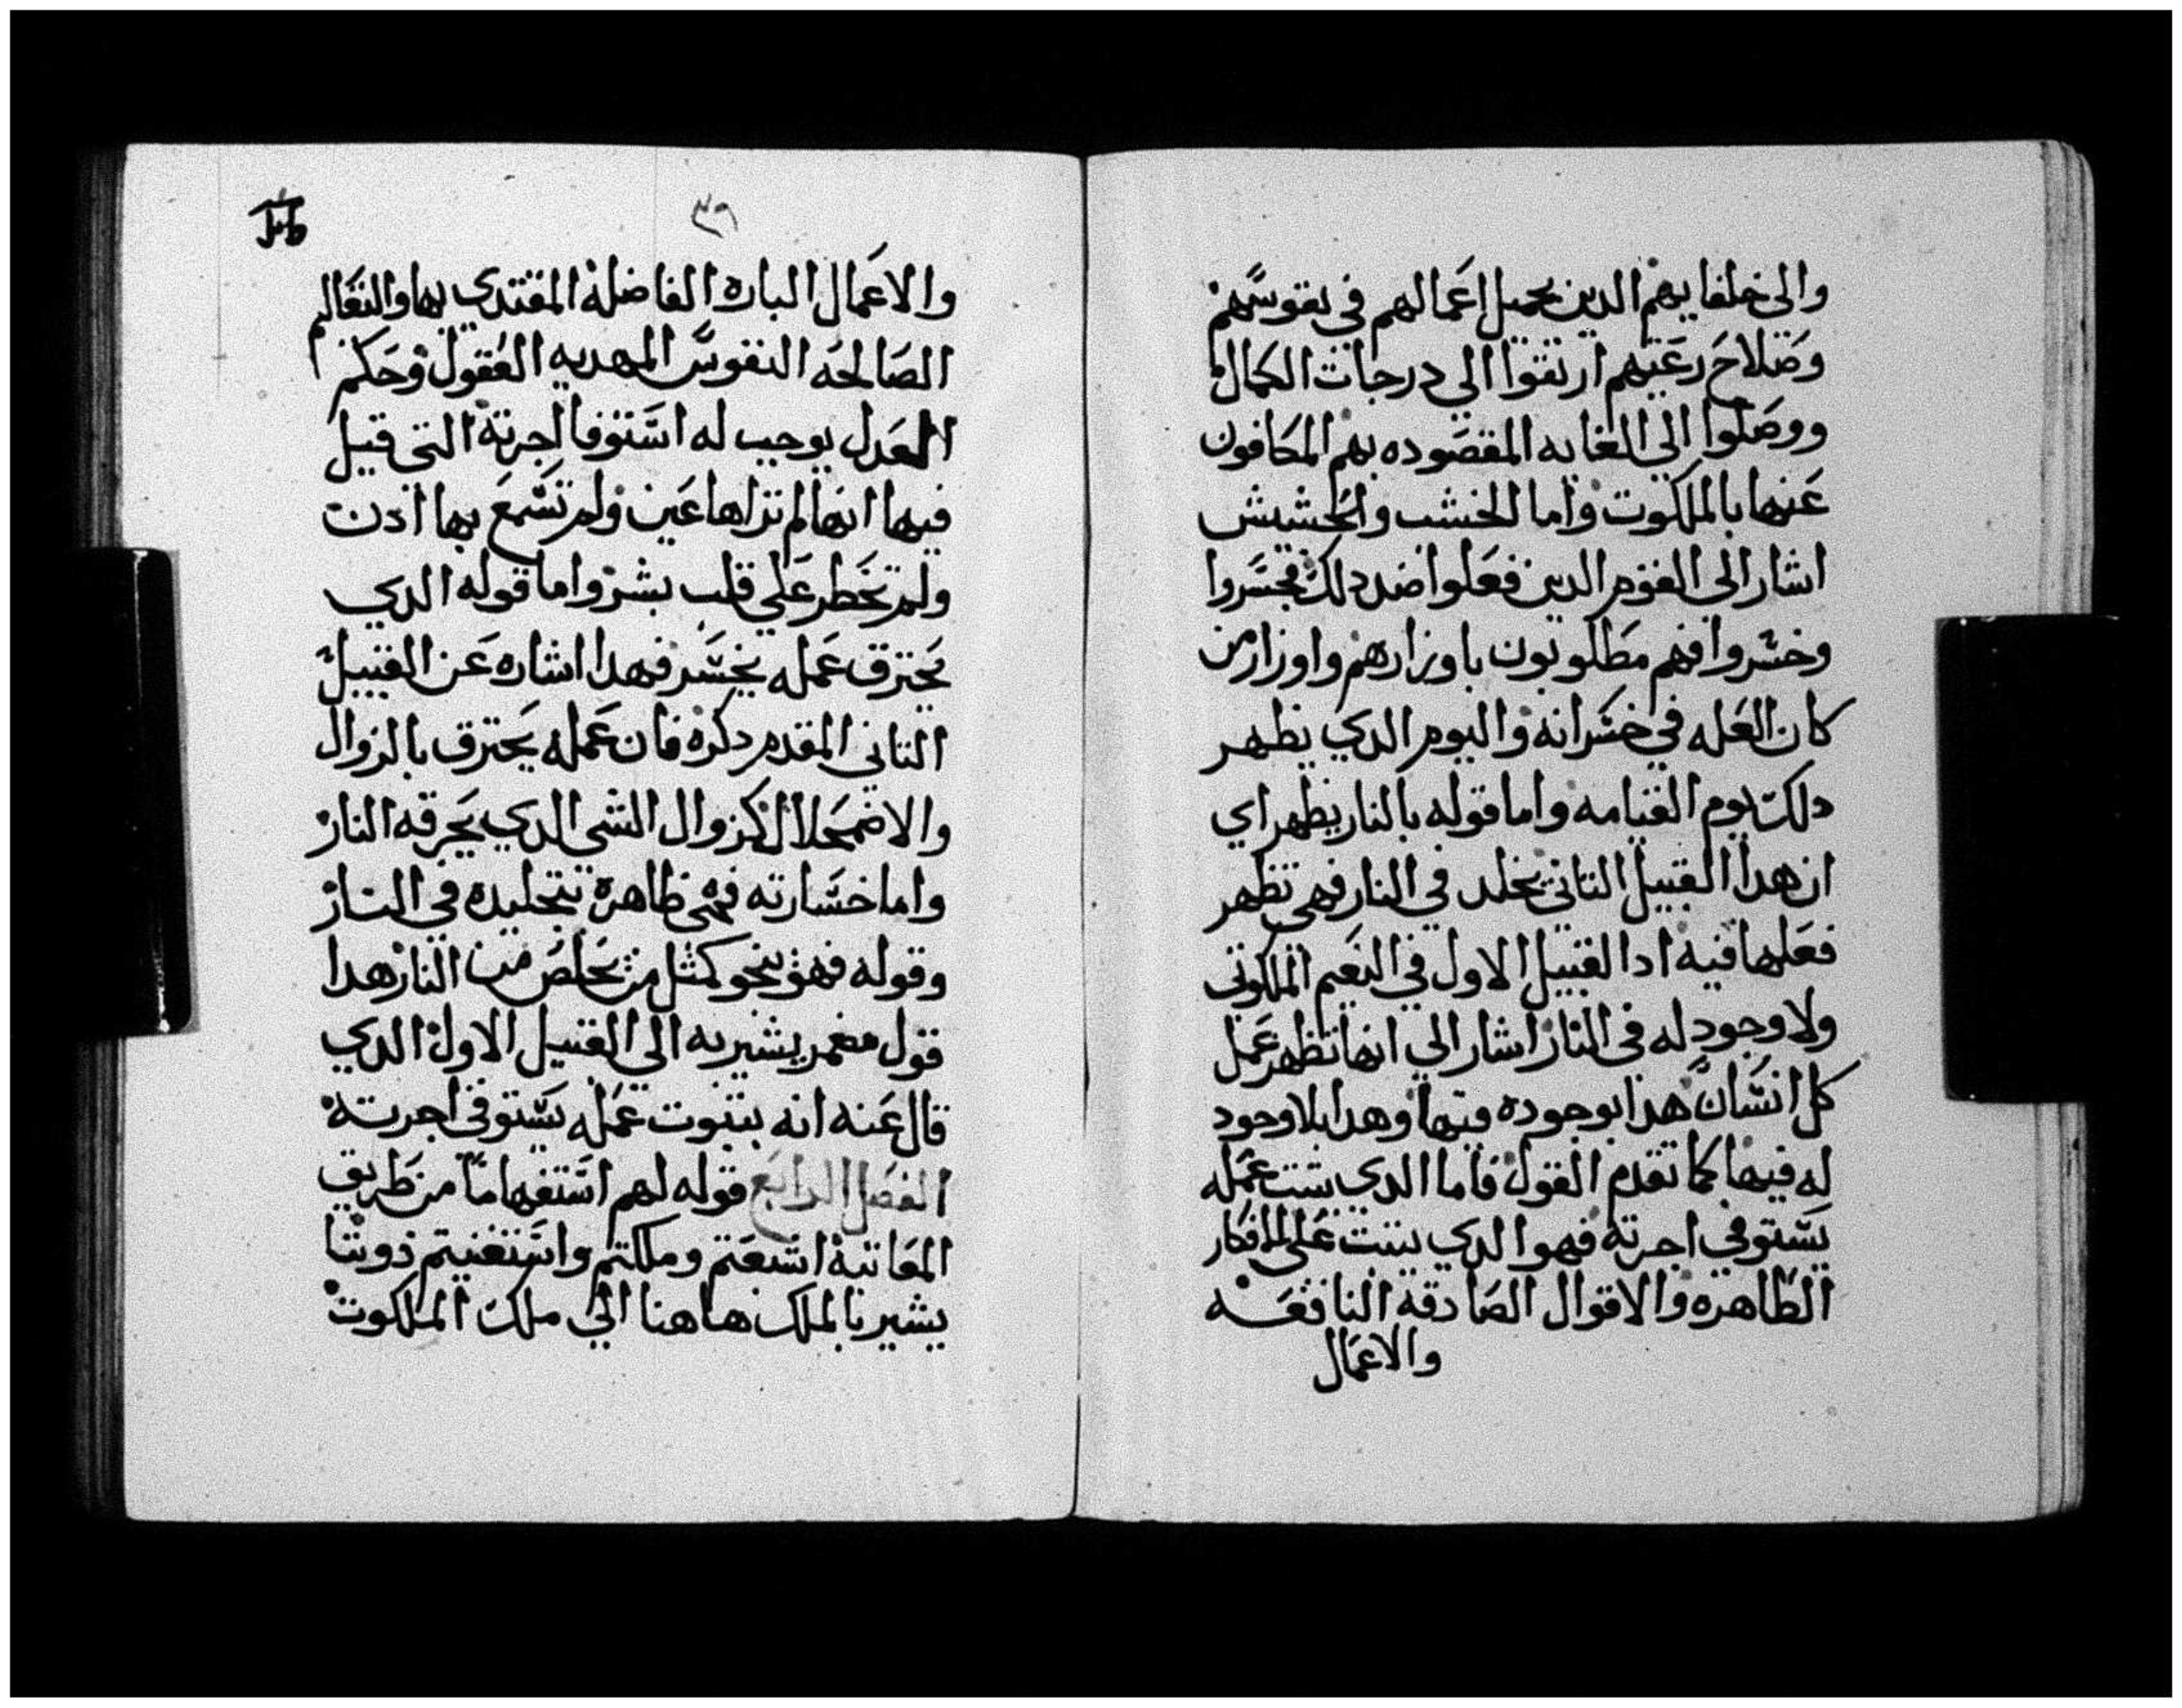 والى خلفايهم الدين بجميل اعمالهم في نفوسهم
وصلاح رعيتهم ارتقوا الي درجات الكمال
ووصلوا الي الغايه المقصوده بهم المكافون
عنها بالملكوت واما الخشب والحشيش
اشار الي القوم الدين فعلوا ضد دلك فخسروا
وخسروا فهم مطلوبون باوزارهم واوزار من
كان العله في خسرانه واليوم الدي يظهر
دلك يوم القيامه واما قوله بالنار يظهر اي
ان هدا القبيل التاني يخلد في النار فهي تظهر
فعلها فيه ادا القبيل الاول في النعيم الملكوتي
ولا وجود له في النار اشار الي انها تظهر عمل
كل انسان هدا بوجوده فيها وهدا بلا وجود
له فيها كما تقدم القول فاما الدي يتبت عمله
يستوفي اجرته فهو الدي يتبت على الافكار
الطاهره والاقوال الصادقه النافعه
والاعمال
٣٩
والاعمال الباره الفاضله المقتدي بها والتعاليم
الصالحه النفوس المهديه العقول وحكم
العدل يوجب له استوفا اجرته التي قيل
فيها انها لم تراها عين ولم تسمع بها ادن
ولم تخطر علي قلب بشر واما قوله الدي
يحترق عمله يخسر فهدا اشاره عن القبيل
التاني المقدم دكره فان عمله يحترق بالزوال
والاضمحلال كزوال الشي الدي يحرقه النار
واما خسارته فهي ظاهرة بتخليده في النار
وقوله فهو ينجو كمثل من يخلص من النار هدا
قول مضمر يشير به الي القبيل الاول الدي
قال عنه انه بتبوت عمله يستوفي اجرته
الفصل الرابع قوله لهم استفهاما من طريق
المعاتبة اشبعتم وملكتم واستغنيتم دوننا
يشير بالملك هاهنا الي ملك الملكوت